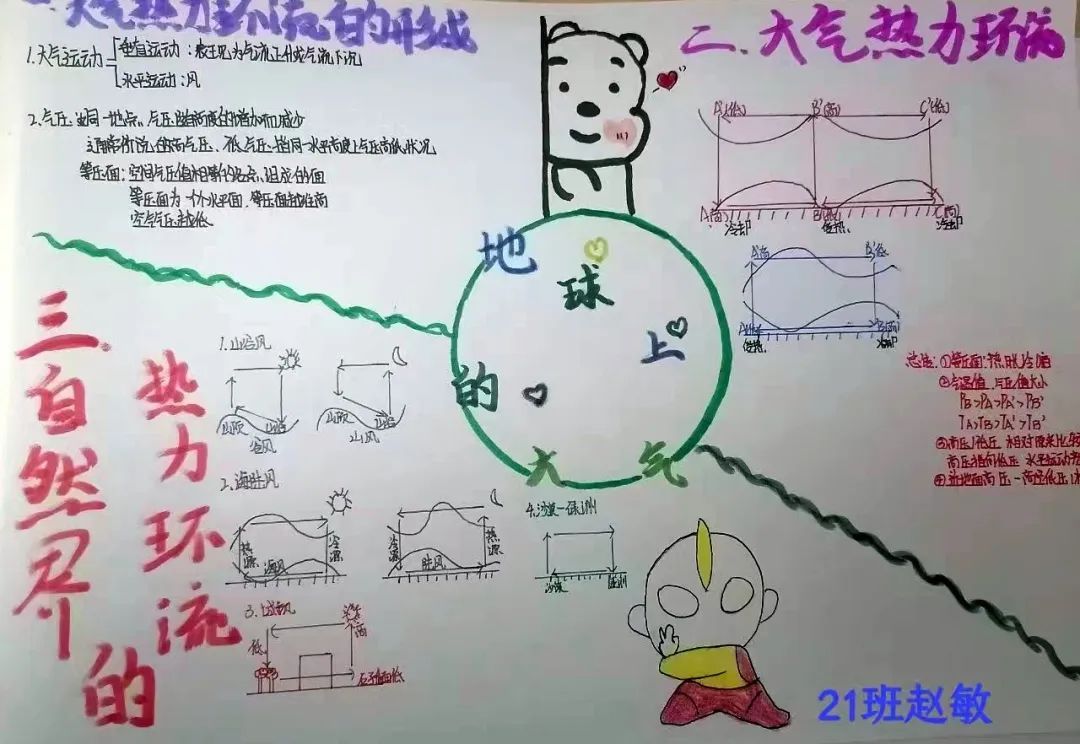 一 大气热力环流的形成
1.大气运动
垂直运动：表现为气流上升或气流下沉
水平运动：风
2.气压：在同一地点，气压随高度的增加而减少
通常所说的高气压、低气压指同一水平高度上气压高低状况
等压面：空间气压值相等的各点组成的面
等压面为一个水平面，等压面越往高
空气气压越低
二.大气热力环流
A'(低) B'(高) C'(低)
A(高) B(低) C(高)
冷却 受热 冷却
A'高 B'低
A低 B(高)
受热 冷却
总结：①等压面：热胀冷缩
②气温值、气压值大小
PB>PA>PA'>PB'
TA>TB>TA'>TB'
③高压低压 相对
高压指向低压 水平运动
④近地面高压
地球上的大气
三.自然界的
热力环流
1.山谷风
山顶 山谷
谷风
山顶 山谷
山风
2.海陆风
热源 海风 冷源
冷源 陆风 热源
3.城郊风
低 高
4.沙漠—绿洲
沙漠 绿洲
21班赵敏